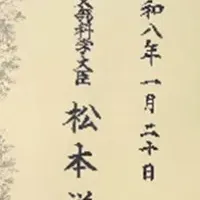 和八年一月二十日
文部科学大臣
松本